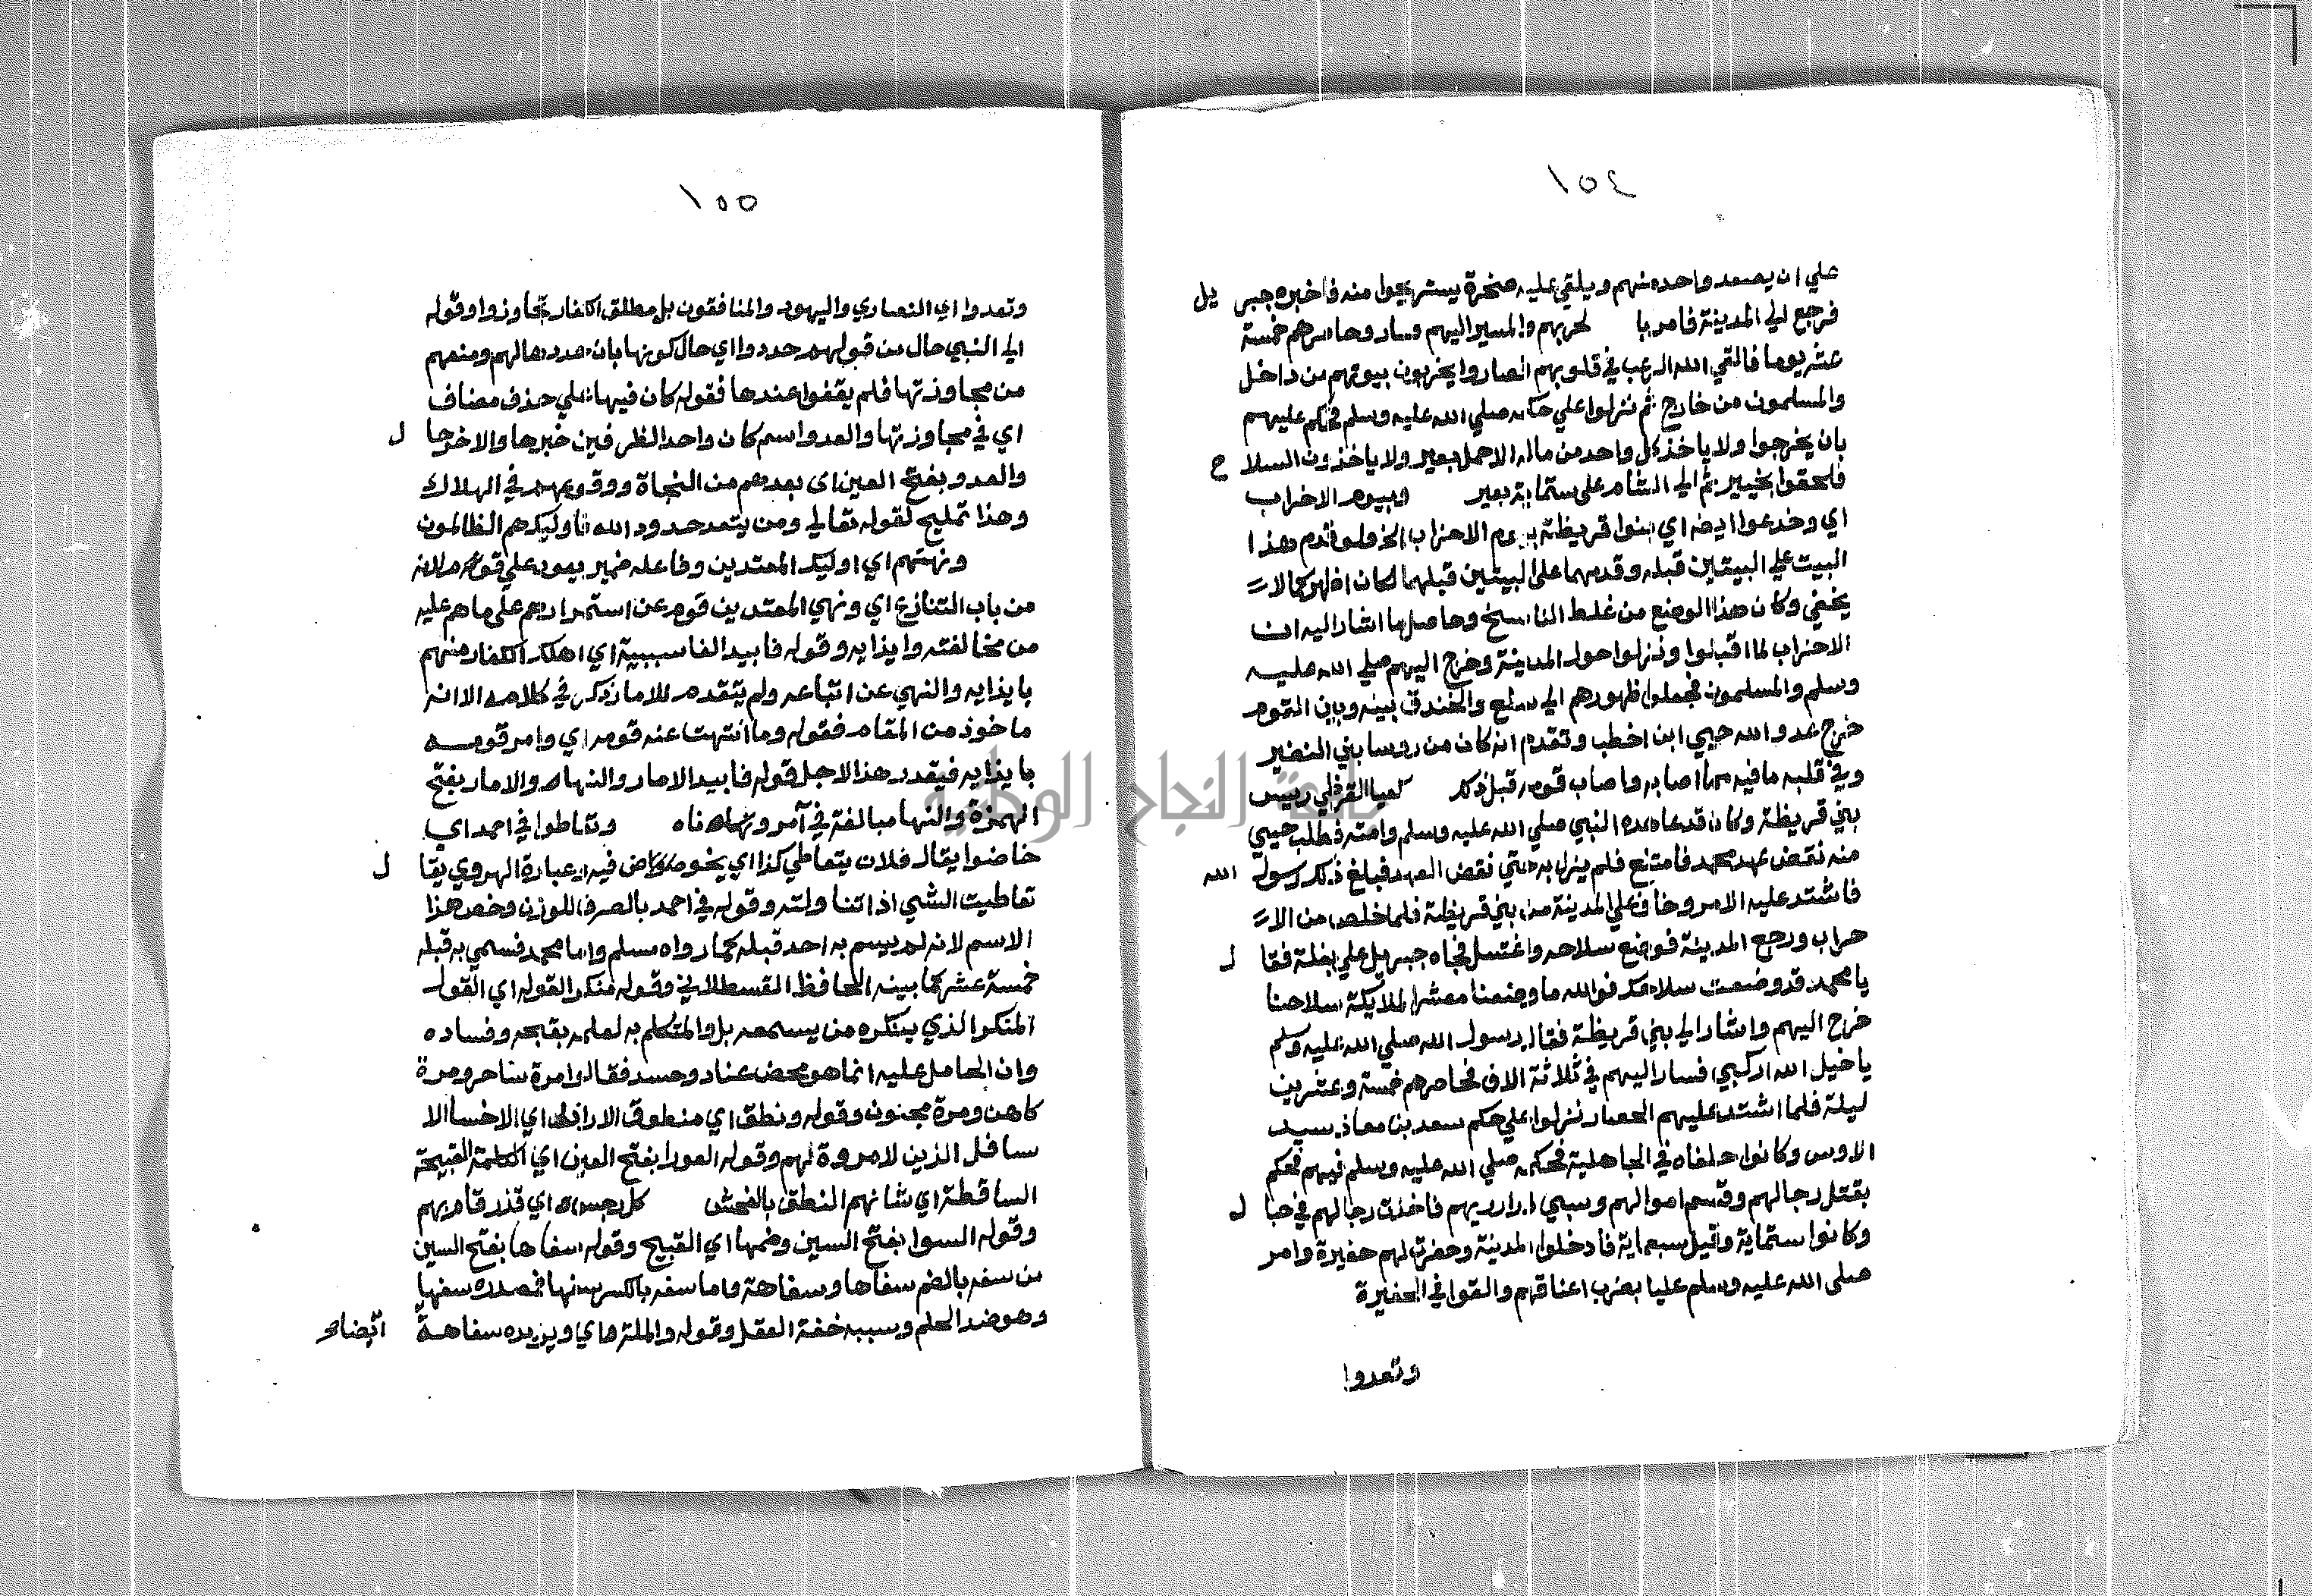 ١٥٤
علي ان يصعد واحد منهم ويلقي عليه صخرة يستريحوا منه فاخبره جبر يل
فرجع الي المدينة فامر با لحربهم والمسير اليهم وسار وحاصرهم خمسة
عشر يوما فالقي الله الرعب في قلوبهم فصاروا يخربون بيوتهم من داخل
والمسلمون من خارج ثم نزلوا علي حكمه صلي الله عليه وسلم فحكم عليهم
بان يخرجوا ولا ياخذ كل واحد من ماله الا حمل بعير ولا ياخذون السلا ح
فلحقوا بخيبر ثم الي الشام علي ستماية بعير وبيوم الاخزاب
اي وخدعوا ايضا اي بنوا قريظة بيوم الاحزاب الخ ولو قدم هذا
البيت علي البيتين قبله وقدمهما علي البيتين قبلهما لكان اظهر كما لا
يخفي وكان هذا الوضع من غلط الناسخ وحاصل ما اشار اليه ان
الاحزاب لما اقبلوا ونزلوا حول المدينة وخرج اليهم صلي الله عليه
وسلم والمسلمون فجعلوا ظهورهم الي سلع والخندق بينه وبين القوم
خرج عدو الله حيي ابن اخطب وتقدم انه كان من روسا بني النضير
وفي قلبه ما فيه مما اصابه واصاب قومه قبل ذلك كعبا القرظي رييس
بني قريظة وكان قد عاهده النبي صلي الله عليه وسلم وامنه فطلب حيي
منه نقض عهد محمد فامتنع فلم يزل به حتي نقض العهد فبلغ ذلك رسول الله
فاشتد عليه الامر وخاف علي المدينة من بني قريظة فلما خلص من الا
حراب ورجع المدينة فوضع سلاحه واغتسل فجاه جبريل علي بغلة فقا ل
يا محمد قد وضعت سلاحك فوالله ما وضعنا معشر الملايكة سلاحنا
خرج اليهم واشار الي بني قريظة فقال رسول الله صلي الله عليه وسلم
يا خيل الله اركبي فسار اليهم في ثلاثة الاف فحاصرهم خمسة وعشرين
ليلة فلما اشتد عليهم الحصار نزلوا علي حكم سعد بن معاذ سيد
الاوس وكانوا حلفاه في الجاهلية فحكمه صلي الله عليه وسلم فيهم فحكم
بقتل رجالهم وقسم اموالهم وسبي ذراريهم فاخذت رجالهم في حبا ل
وكانوا ستماية وقيل سبعماية فادخلوا المدينة وحفرت لهم حفيرة وامر
صلي الله عليه وسلم عليا بضرب اعناقهم والقوا في الحفيرة
وتعدوا
١٥٥
وتعدوا اي النصاري واليهود والمنافقون بل مطلق الكفار تجاوزوا وقوله
الي النبي حال من قبولهم حدودا اي حال كونها بان حددها لهم ومنعهم
من مجاوزتها فلم يقفوا عندها فقوله كان فيها علي حذف مضاف
اي في مجاوزتها والعدو اسم كان واحد الظرفين خبرها والاخر حا ل
والعدو بفتح العين اي بعدهم من النجاة ووقوعهم في الهلاك
وهذا تمليح لقوله تعالي ومن يتعد حدود الله فاوليك هم الظالمون
ونهتهم اي اوليك المعتدين وفاعله ضمير يعود علي قومه لانه
من باب التنازع اي ونهي المعتدين قوم عن استمرارهم علي ما هم عليه
من مخالفته وايذايه وقوله فابيد الفا سببية اي اهلك الكفار منهم
بايذايه والنهي عن اتباعه ولم يتقدم للامار ذكر في كلامه الا انه
ماخوذ من المقام فقوله وما انتهت عنه قوم اي وامر قومه
بايذايه فيقدر هذا لاجل قوله فابيد الامار والنهاه والامار بفتح
الهمزة والنها مبالغة في آمر وناه وتعاطوا في احمد اي
خاضوا يقال فلان يتعاطي كذا اي يخوض فيه وعبارة الهروي يقا ل
تعاطيت الشي اذا تناولته وقوله في احمد بالصرف للوزن وخص هذا
الاسم لانه لم يسم به احد قبله كما رواه مسلم واما محمد فسمي به قبله
خمسة عشر كما بينه الحافظ القسطلاني وقوله منكر القوله اي القول
المنكر الذي ينكره من يسمعه بل والمتكلم به لعلمه بقبحه وفساده
وان الحامل عليه انما هو محض عناد وحسد فقالوا مرة ساحر ومرة
كاهن ومرة مجنون وقوله ونطق اي منطوق الاراذل اي الاخسا الا
سافل الذين لا مروة لهم وقوله العورا بفتح العين اي الكلمة القبيحة
الساقطة اي شانهم النطق بالفحش كل رجس اي قذر قاربهم
وقوله السوا بفتح السين وضمها اي القبيح وقوله سفاها بفتح السين
من سفه بالضم سفاها وسفاهة واما سفه بالكسر فمصدره سفها
وهو ضد الحلم وسببه خفة العقل وقوله والملة اي ويزيده سفاهة
جامعة النجاح الوطنية